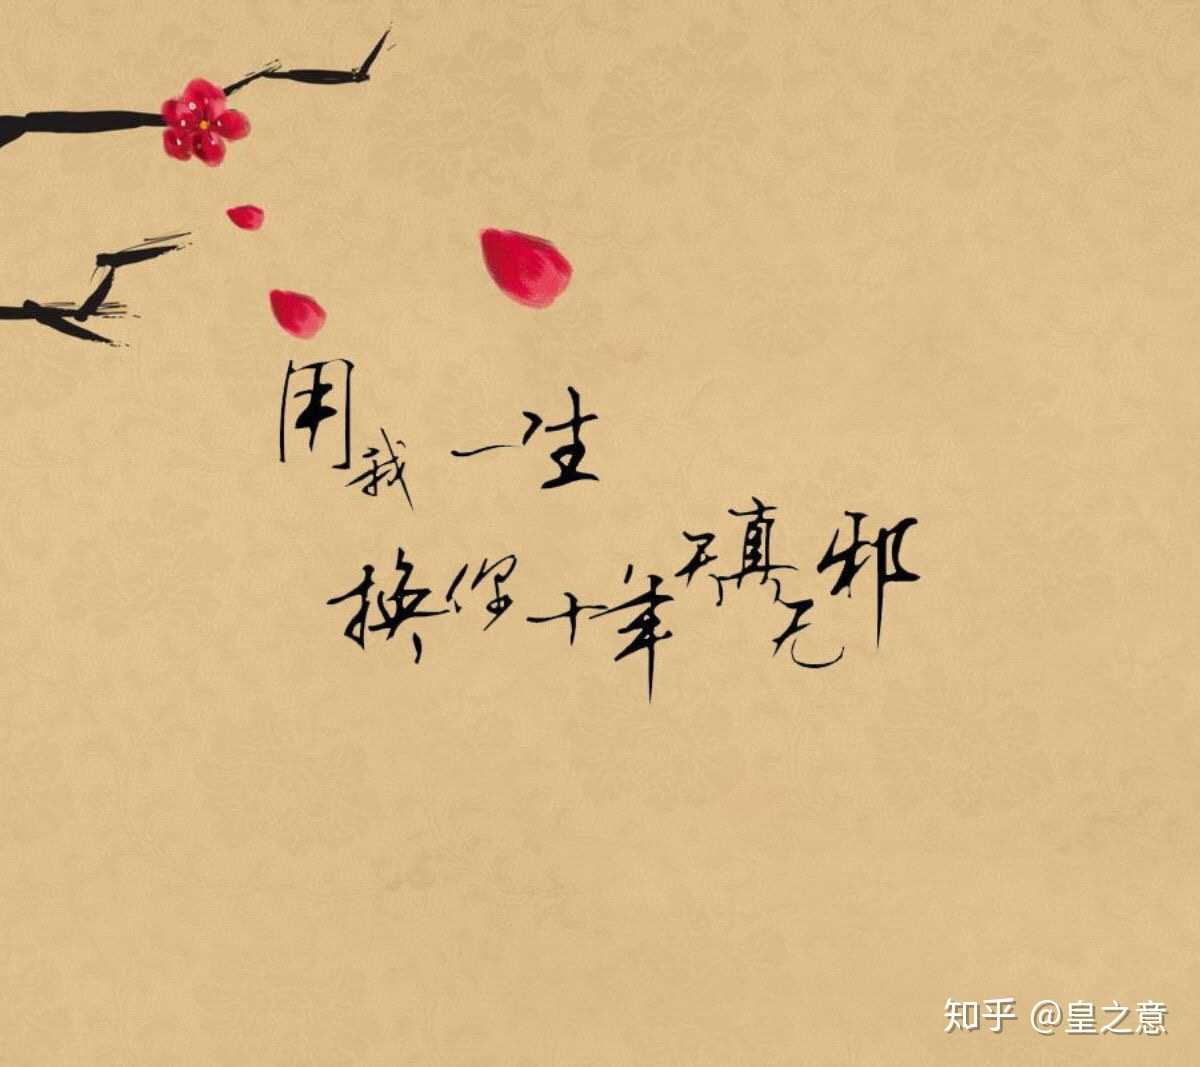 用我一生
换你十年天真无邪
知乎 @皇之意